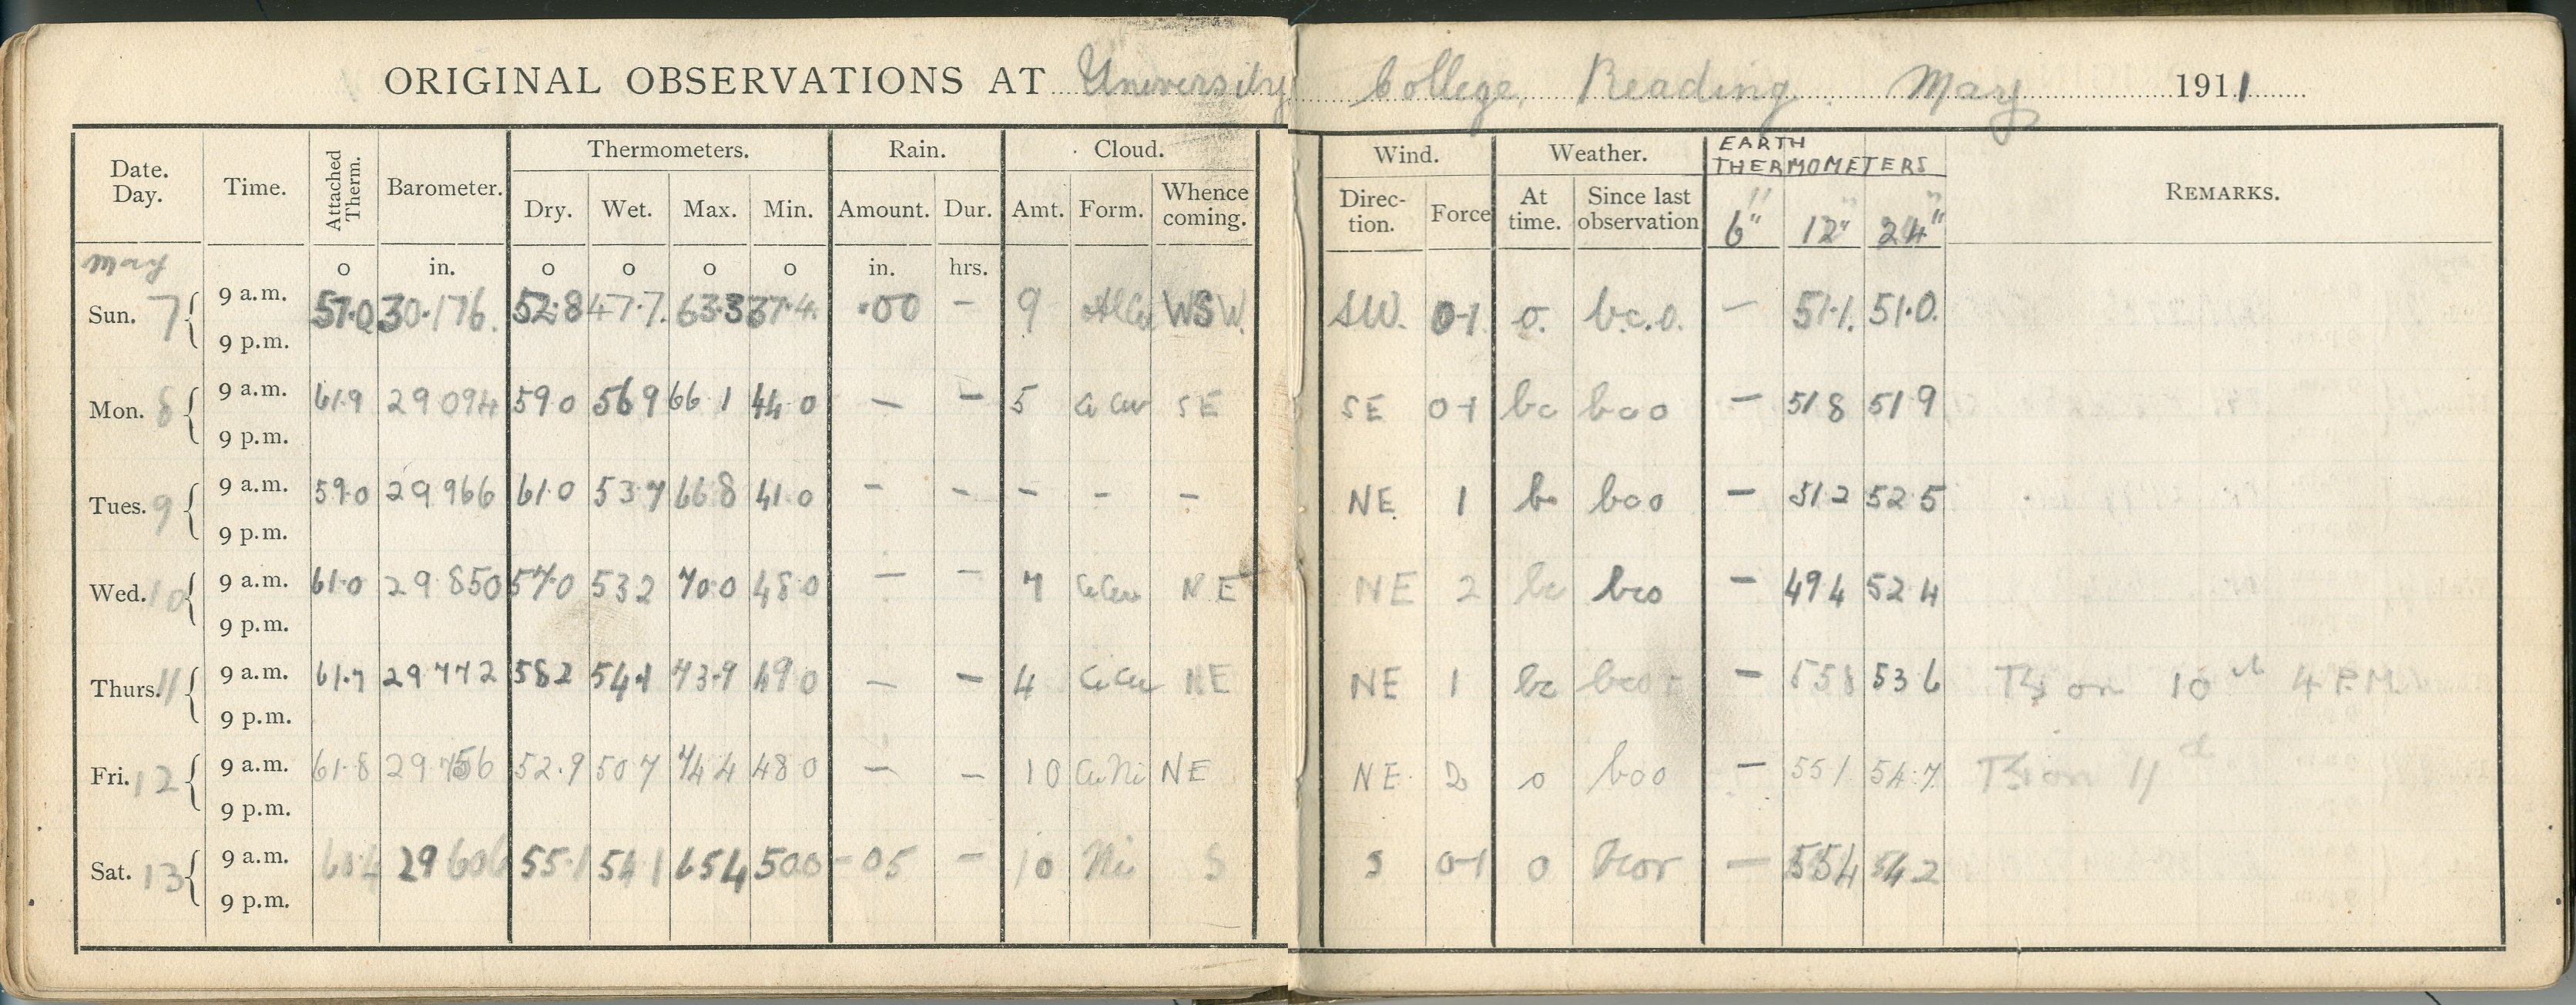 ORIGINAL OBSERVATIONS AT University College, Reading. May 1911
Date. Day. Time. Attached Therm. Barometer. Thermometers. Rain. Cloud. Wind. Weather. EARTH THERMOMETERS REMARKS.
Dry. Wet. Max. Min. Amount. Dur. Amt. Form. Whence coming. Direc- tion. Force At time. Since last observation 6" 12" 24"
May o in. o o o o in. hrs.
Sun. 7 9 a.m. 57.0 30.176. 52.8 47.7. 63.3 37.4. .00 – 9 AlCu WSW. SW. 0-1 o. b.c.o. – 51.1. 51.0.
9 p.m.
Mon. 8 9 a.m. 61.9 29 094 59.0 56 9 66 1 44 0 – – 5 SE SE 0-1 bc bco – 51 8 51 9
9 p.m.
Tues. 9 9 a.m. 59.0 29 966 61.0 53.7 66 8 41.0 – – – – – NE 1 b bco – 51 2 52 5
9 p.m.
Wed. 10 9 a.m. 61.0 29 850 57.0 53 2 70.0 48.0 – – 7 NE NE 2 bc bco – 49 4 52 4
9 p.m.
Thurs. 11 9 a.m. 61.7 29 772 58 2 54.1 73.9 49 0 – – 4 NE NE 1 bc – 55 8 53 6 on 10th 4 P.M.
9 p.m.
Fri. 12 9 a.m. 61.8 29.756 52.9 50 7 74 4 48 0 – – 10 CuNi NE NE 2 o bco – 55 1 54.7 on 11
9 p.m.
Sat. 13 9 a.m. 60.4 29 606 55.1 54 1 65 4 50.0 -05 – 10 Ni S S 0-1 o bcor – 55 4 54 2
9 p.m.